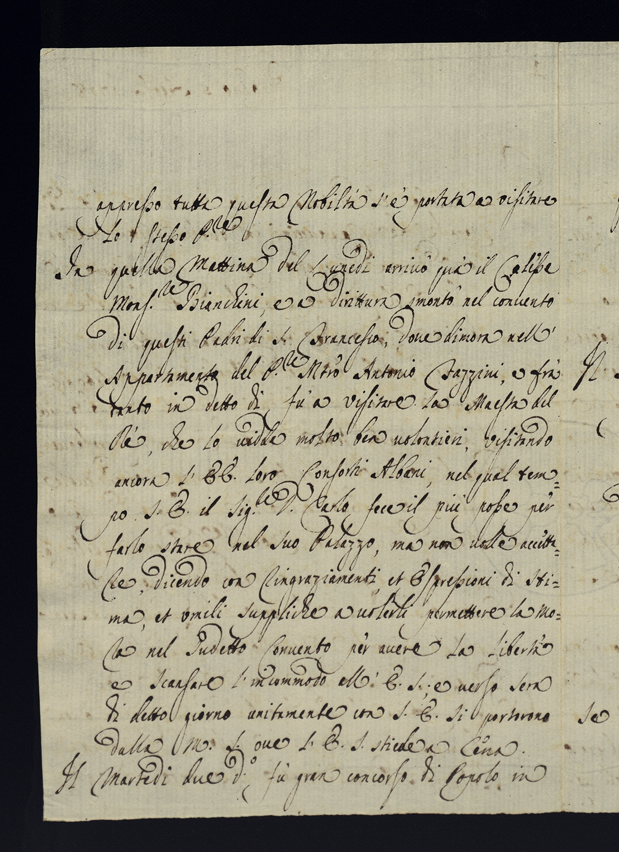 appresso tutta questa Nobiltà s'è portata a visitare
Lo stesso P.le
In quella Mattina del Lunedì arrivò quà il
Mons.re Bianchini, e a dirittura smontò nel convento
di questi Padri di S. Francesco, dove dimora nell'
Appartamento del P.re Mtrò Antonio Bazzini, e frà
tanto in detto dì fù a visitare La Maestà del
Rè, che lo vidde molto ben volontieri, visitando
ancora l'EE. Loro Consorti Albani, nel qual tem=
po S. E. il Sig.re D. Carlo fece il più posse per
farlo stare nel suo Palazzo, ma non volle accitta=
re, dicendo con ringraziamenti, et Espressioni di sti=
ma, et umili suppliche a volerli permettere la mo=
ra nel sudetto Convento per avere La Libertà
e scansare l'incommodo all' E. S.; e verso sera
di detto giorno unitamente con S. E. si portorono
dalla M. S. ove L'E. S. stiede a Cena.
Il Martedì due d.o fù gran concorso di Popolo in
Il
se